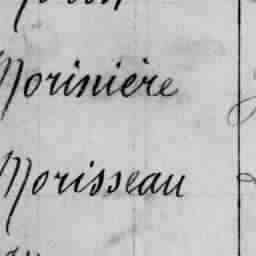 Morinière
Morisseau